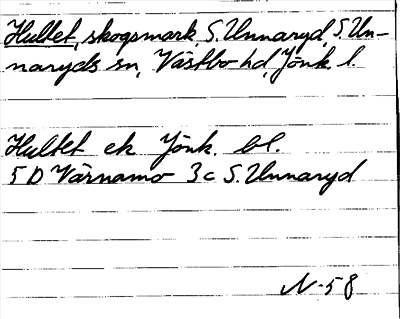 Hultet, skogsmark, S. Unnaryd, S. Un-
naryds sn, Västbo hd, Jönk. l.
Hultet ek Jönk. bl.
5 D Värnamo 3c S. Unnaryd
N-58